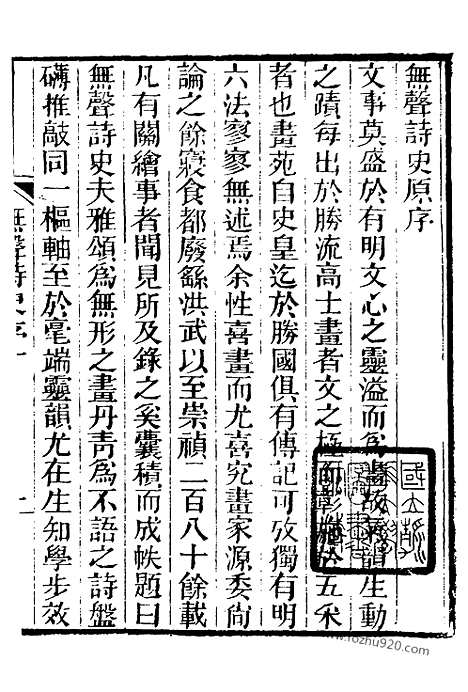 無聲詩史原序
文事莫盛於有明文心之靈溢而爲畫故氣韻生動
之蹟每出於勝流高士畫者文之極而彰施於五采
者也畫苑自史皇迄於勝國俱有傳記可攷獨有明
六法寥寥無述焉余性喜畫而尤喜究畫家源委尙
論之餘寢食都廢繇洪武以至崇禎二百八十餘載
凡有關繪事者聞見所及錄之奚囊積而成帙題曰
無聲詩史夫雅頌爲無形之畫丹靑爲不語之詩盤
礴推敲同一樞軸至於毫端靈韻尤在生知學步效
無聲詩史序
一
國立